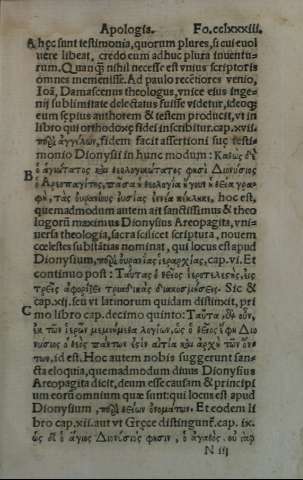 Apologia. Fo.cclxxxiii.
A hęc sunt testimonia, quorum plures, si cui euol
uere libeat, credo eum adhuc plura inuentu-
rum. Quanꝗ̃ nihil necesse est vnius scriptoris
omnes meminisse. Ad paulo recẽtiores venio,
Ioã, Damascenus theologus, vnice eius inge-
nij sublimitate delectatus fuisse videtur, ideoqꝫ
eum sępius authorem & testem producit, vt in
libro qui orthodoxę fidei inscribitur. cap. xvii.
περὶ ἀγγέλων, fidem facit assertioni suę testi-
monio Dionysii in hunc modum: Καθὼς
B ὁ ἁγιώτατος καὶ θεολογικώτατος φησὶ Διονύσιος
ὁ Ἀρεοπαγίτης, πᾶσα ἡ θεολογία ἤγουν ἡ θεία γρα-
φὴ, τὰς οὐρανίους οὐσίας ἐννέα κέκληκε, hoc est,
quemadmodum autem ait sanctissimus & theo
logorũ maximus Dionysius Areopagita, vni-
uersa theologia, sacra scilicet scriptura, nouem
cœlestes substãtias nominat, qui locus est apud
Dionysium, περὶ οὐρανίας ἱεραρχίας, cap. vi. Et
continuo post: Ταύτας ὁ θεῖος ἱεροτελεστὴς, εἰς
τρεῖς ἀφορίζει τριαδικὰς διακοσμήσεις. Sic &
cap. xii. seu vt latinorum quidam distinxit, pri
C mo libro cap. decimo quinto: Ταῦτα,
ἐκ τῶν ἱερῶν μεμυήμεθα λογίων, ὡς ὁ θεῖος ἔφη Διο
νύσιος ὁ θεὸς πάντων ἐστὶν αἰτία καὶ ἀρχὴ τῶν ὄν-
των, id est. Hoc autem nobis suggerunt san-
cta eloquia, quemadmodum diuus Dionysius
Areopagita dicit, deum esse causam & principi
um eorũ omniũ quæ sunt: qui locus est apud
Dionysium, περὶ θείων ὀνομάτων. Et eodem li
bro cap. xii. aut vt Gręce distingunt. cap. ix.
ὡς ὁ ἅγιος Διονύσιός φησιν, ὁ ἀγαθὸς. οὐ γὰρ
N iij